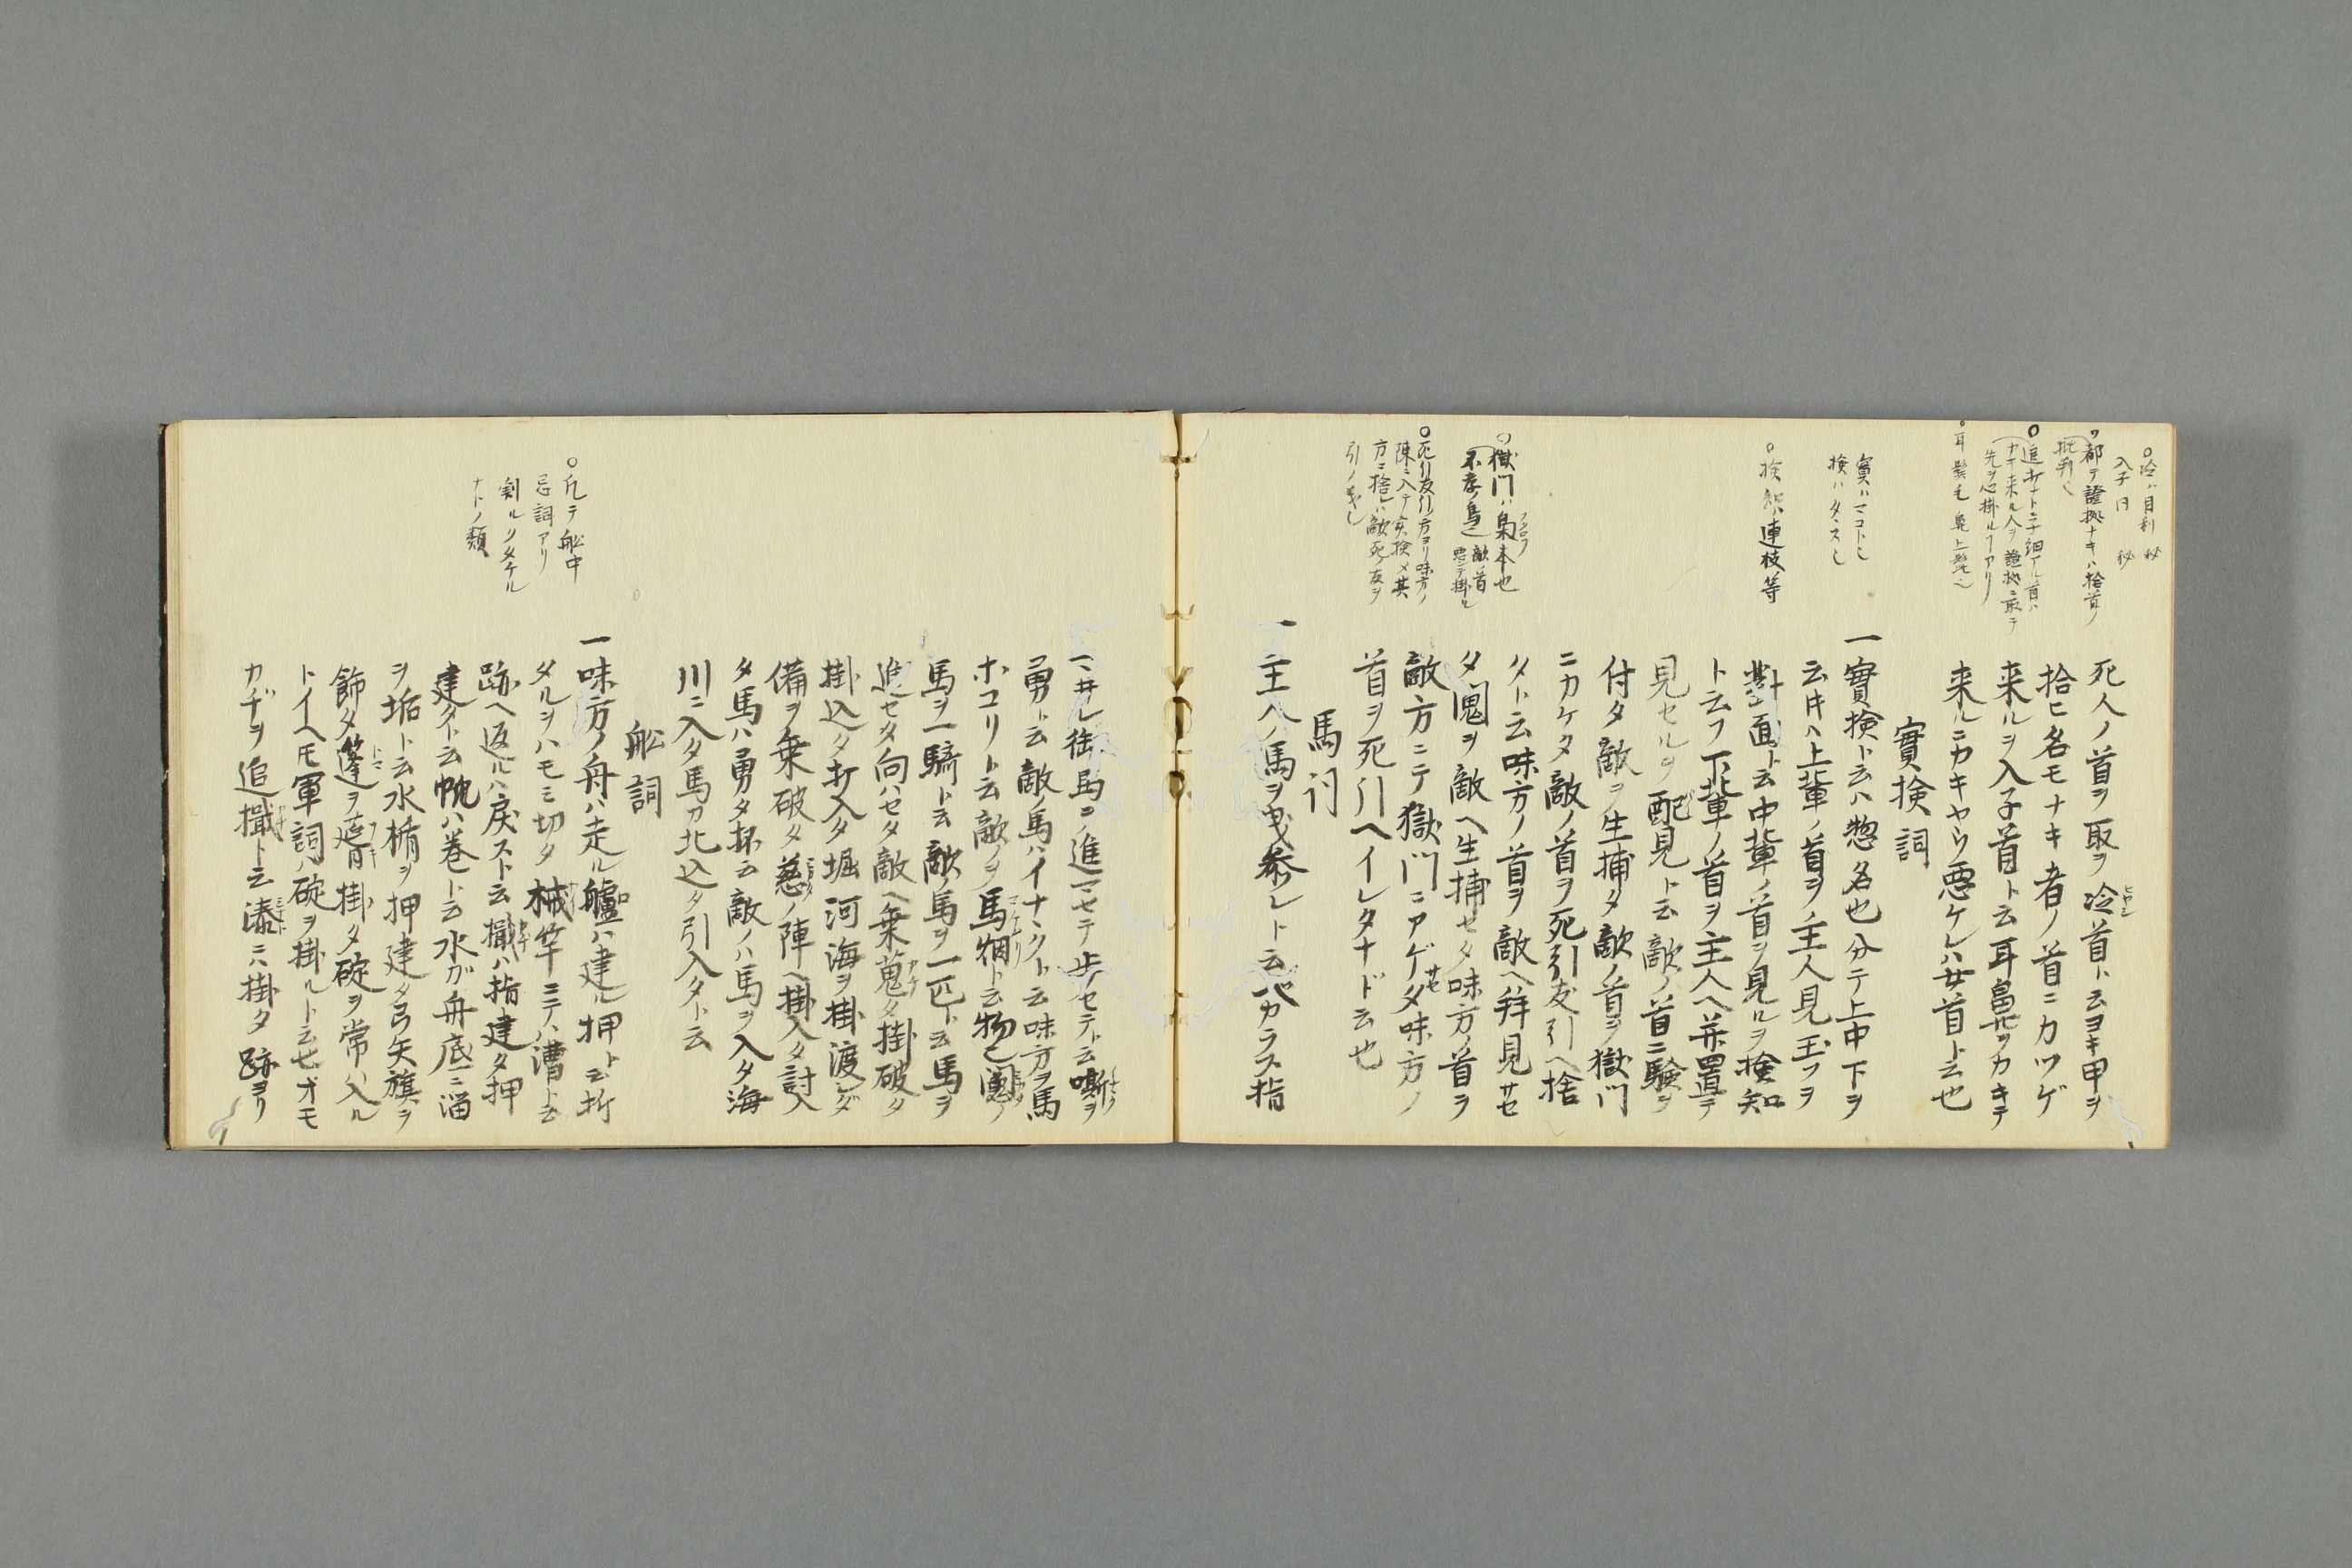 ○冷ハ目利 秘
入子 同 秘
○都テ證拠ナキハ捨首ノ
批判
○追打ナト子細アル首ハ
先ヲ心掛ルヿアリ
○耳 髪毛 鼻上髭
死人ノ首ヲ取ヲ冷首ト云ヨキ甲ヲ
拾ヒ名モナキ者ノ首ニカツゲ
来ルヲ入子首ト云耳鼻ヲカキテ
来ルニカキヤウ悪ケレハ女首ト云也
實検詞
實ハマコト
検ハタヽス
一實検ト云ハ惣名也分テ上中下ヲ
云時ハ上輩ノ首ヲハ主人見玉フヲ
○検知連枝等
對面ト云中輩ノ首ヲ見ルヲ検知
ト云フ下輩ノ首ヲ主人ヘ並置テ
見セルヲ配見ト云敵ノ首ニ験ヲ
付タ敵ヲ生捕タ敵ノ首ヲ獄門
ニカケタ敵ノ首ヲ死引友引ヘ捨
タト云味方ノ首ヲ敵ヘ拝見サセ
○獄門ハ梟木也
不孝ノ鳥 敵首
タ傀ヲ敵ヘ生捕セタ味方ノ首ヲ
敵方ニテ獄門ニアゲサセタ味方ノ
首ヲ死引ヘイレタナド云也
○死引友引ノ方ヨリ味方ノ
陳ニ入テ実検〆其
方ニ捨レハ敵死ノ友ヲ
引ノ義
馬詞
一主人ノ馬ヲ曳参レト云ベカラス指
勇ト云敵ノ馬ハイナヽクト云味方ヲ馬
ホコリト云敵ノヲ馬烟ト云物
馬ヲ一騎ト云敵ノ馬ヲ一匹ト云馬ヲ
進セタ向ハセタ敵ヘ乗蒐タ掛破タ
掛込タ打入タ堀河海ヲ掛渡
備ヲ乗破タ 陣ヘ掛入タ討入
タ馬ハ勇タ抔云敵ノハ馬ヲ入タ海
川ニ入タ馬カ北込タ引入タト云
舩詞
○凡テ舩中
忌詞アリ
割ル クタケル
ナトノ類
一味方ノ舟ハ走ル艫ハ建ル押ト云折
タルヲハモミ切タ 竿ニテハ漕ト云
跡ヘ返ルハ戻スト云 指建タ押
建タト云帆ハ巻ト云水ガ舟底ニ溜
ヲ垢ト云水楯ヲ押建タ弓矢旗ヲ
飾タ篷ヲ 掛タ碇ヲ常ハ入ル
トイヘ𪜈軍詞ハ碇ヲ掛ルト云也オモ
カヂヲ追 ト云湊ニハ掛タ跡ヨリ